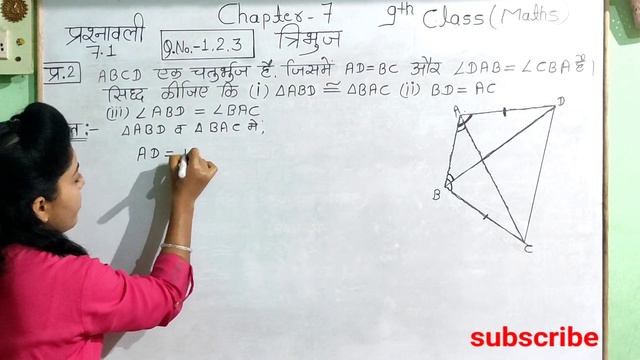 Chapter-7 9th Class (Maths)
प्रश्नावली 7.1 Q.No.-1,2,3 त्रिभुज
प्र.2 ABCD एक चतुर्भुज है, जिसमें AD=BC और ∠DAB=∠CBA है।
सिध्द कीजिए कि (i) △ABD ≅ △BAC (ii) BD=AC
(iii) ∠ABD = ∠BAC
:- △ABD व △BAC में,
AD =
A
D
B
C
subscribe